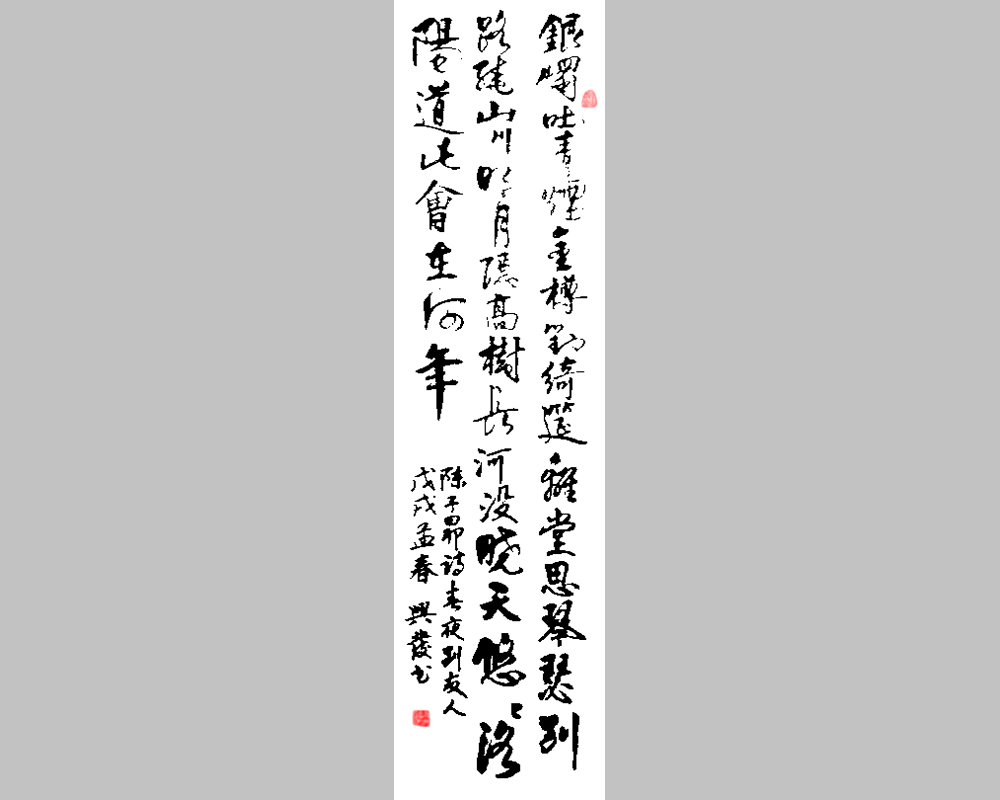 銀燭吐青煙金樽對綺筵離堂思琴瑟別
路繞山川明月隱高樹長河没曉天悠々洛
陽道此會在何年
陳子昂詩春夜別友人
戊戌孟春 興發書